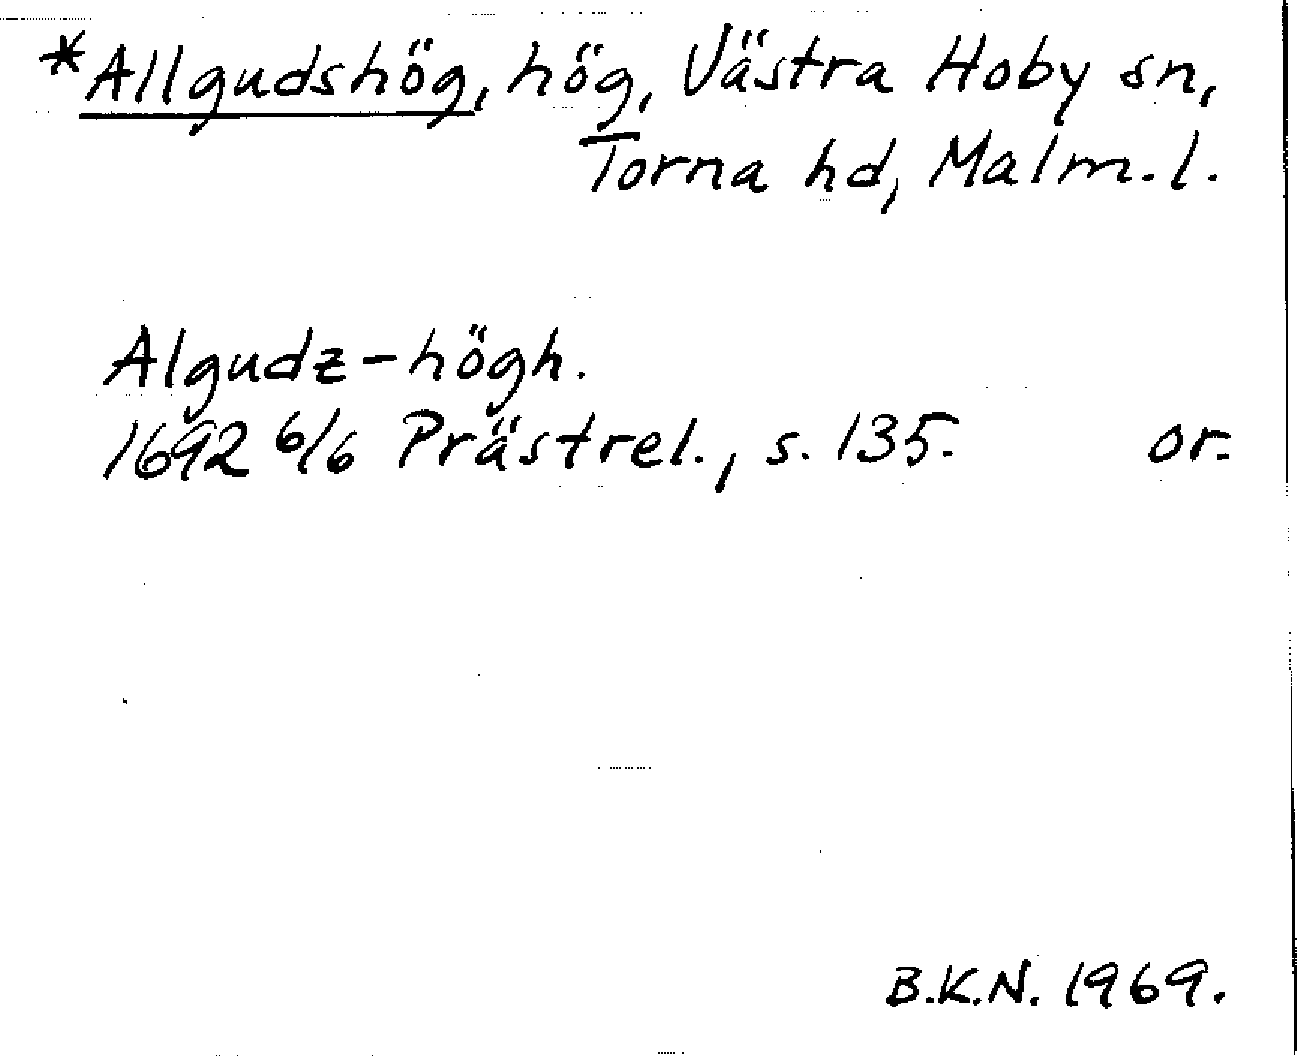 *Allgudshög, hög, Västra Hoby sn,
Torna hd, Malm. l.
Algudz-högh.
1692 6/6 Prästrel., s. 135. or.
B.K.N. 1969.